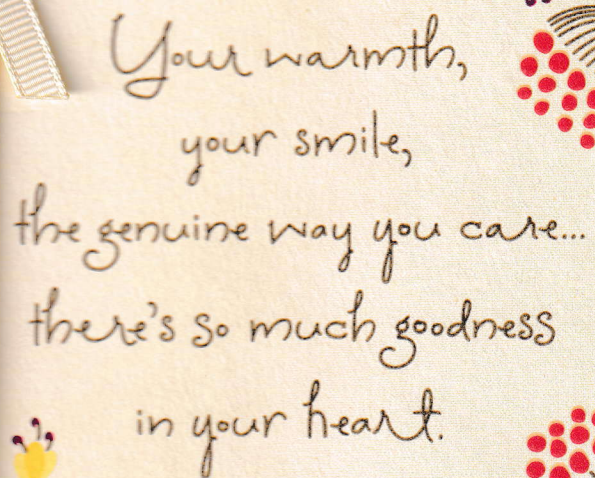 Your warmth,
your smile,
the genuine way you care...
there's so much goodness
in your heart.